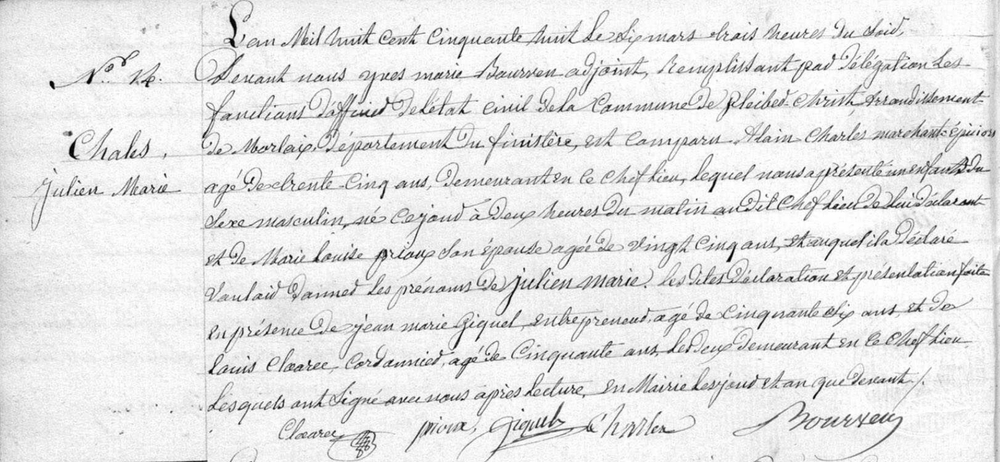 L'an Mil huit cent cinquante huit le six mars trois heures du soir,
Nos 24. Devant nous yves marie Bourven adjoint, Remplissant par délégation les
fonctions d'officier de l'état civil de la Commune de pleiber christ, arrondissement
Chales, de Morlaix Département du finistère, est comparu Alain Charles marchant épicier
Julien Marie agé de trente cinq ans, demeurant en ce chef lieu, lequel nous a présenté un enfant du
sexe masculin, né ce jour à deux heures du matin au dit chef lieu de lui déclarant
et de Marie Louise prioux son épouse agée de vingt cinq ans, et auquel il a déclaré
vouloir donner les prénoms de julien marie. Les dites déclaration et présentation faite
en présence de jean marie giquel, entrepreneur, agé de cinquante six ans et de
Louis Cloarec, cordonnier, agé de cinquante ans, les deux demeurant en ce chef lieu
Lesquels ont signé avec nous après lecture, en Mairie les jour et an que devant /.
Cloarec prioux, giquel Charles Bourven